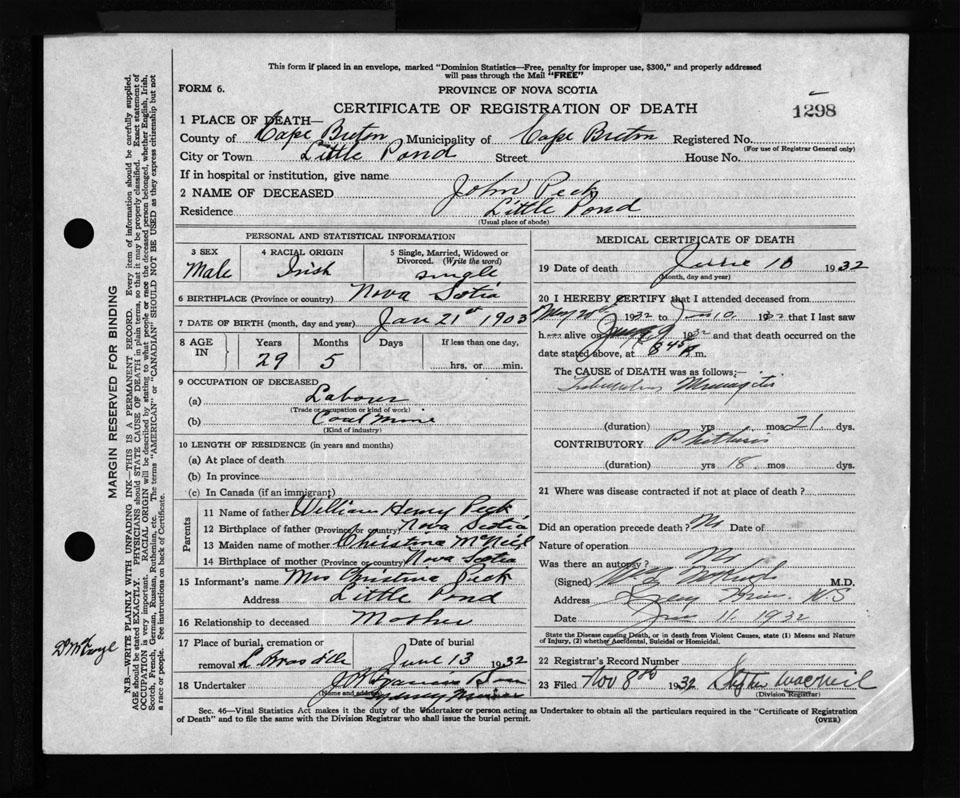 This form if placed in an envelope, marked "Dominion Statistics—Free, penalty for improper use, $300," and properly addressed
will pass through the Mail "FREE"
FORM 6.
PROVINCE OF NOVA SCOTIA
CERTIFICATE OF REGISTRATION OF DEATH
1298
1 PLACE OF DEATH—
County of Cape Breton Municipality of Cape Breton Registered No.
(For use of Registrar General only)
City or Town Little Pond Street House No.
If in hospital or institution, give name
2 NAME OF DECEASED John Peck
Residence Little Pond
(Usual place of abode)
PERSONAL AND STATISTICAL INFORMATION
3 SEX Male
4 RACIAL ORIGIN Irish
5 Single, Married, Widowed or Divorced. (Write the word) single
6 BIRTHPLACE (Province or country) Nova Scotia
7 DATE OF BIRTH (month, day and year) Jan 21st 1903
8 AGE IN Years 29 Months 5 Days If less than one day, hrs. or min.
9 OCCUPATION OF DECEASED
(a) Labour
(Trade or occupation or kind of work)
(b) Coal mine
(Kind of industry)
10 LENGTH OF RESIDENCE (in years and months)
(a) At place of death
(b) In province
(c) In Canada (if an immigrant)
Parents
11 Name of father William Henry Peck
12 Birthplace of father (Province or country) Nova Scotia
13 Maiden name of mother Christina McNeil
14 Birthplace of mother (Province or country) Nova Scotia
15 Informant's name Mrs Christina Peck
Address Little Pond
16 Relationship to deceased Mother
17 Place of burial, cremation or removal L. Bras d'Or
Date of burial June 13 1932
18 Undertaker
(Name and address) Sydney Mines
MEDICAL CERTIFICATE OF DEATH
19 Date of death June 10 1932
(Month, day and year)
20 I HEREBY CERTIFY that I attended deceased from
May 20 1932 to June 10 1932 that I last saw
h alive on June 9 1932 and that death occurred on the
date stated above, at 8 45 A m.
The CAUSE OF DEATH was as follows;—
Tubercular Meningitis
(duration) yrs mos 21 dys.
CONTRIBUTORY Phthisis
(duration) yrs 18 mos dys.
21 Where was disease contracted if not at place of death?
Did an operation precede death? No Date of
Nature of operation
Was there an autopsy? No
(Signed) M.D.
Address N.S
Date Jun 11, 1932
State the Disease causing Death, or in death from Violent Causes, state (1) Means and Nature
of Injury, (2) whether Accidental, Suicidal or Homicidal.
22 Registrar's Record Number
23 Filed Nov 8th 1932
(Division Registrar)
Sec. 46—Vital Statistics Act makes it the duty of the Undertaker or person acting as Undertaker to obtain all the particulars required in the "Certificate of Registration
of Death" and to file the same with the Division Registrar who shall issue the burial permit.
(OVER)
MARGIN RESERVED FOR BINDING
N.B.—WRITE PLAINLY WITH UNFADING INK—THIS IS A PERMANENT RECORD. Every item of information should be carefully supplied.
AGE should be stated EXACTLY. PHYSICIANS should STATE CAUSE OF DEATH in plain terms, so that it may be properly classified. Exact statement of
OCCUPATION is very important. RACIAL ORIGIN will be described by stating to what people or race the deceased person belonged, whether English, Irish,
Scotch, French, German, Russian, Ruthenian, etc. The terms "AMERICAN" or "CANADIAN" SHOULD NOT BE USED as they express citizenship but not
a race or people. See instructions on back of Certificate.